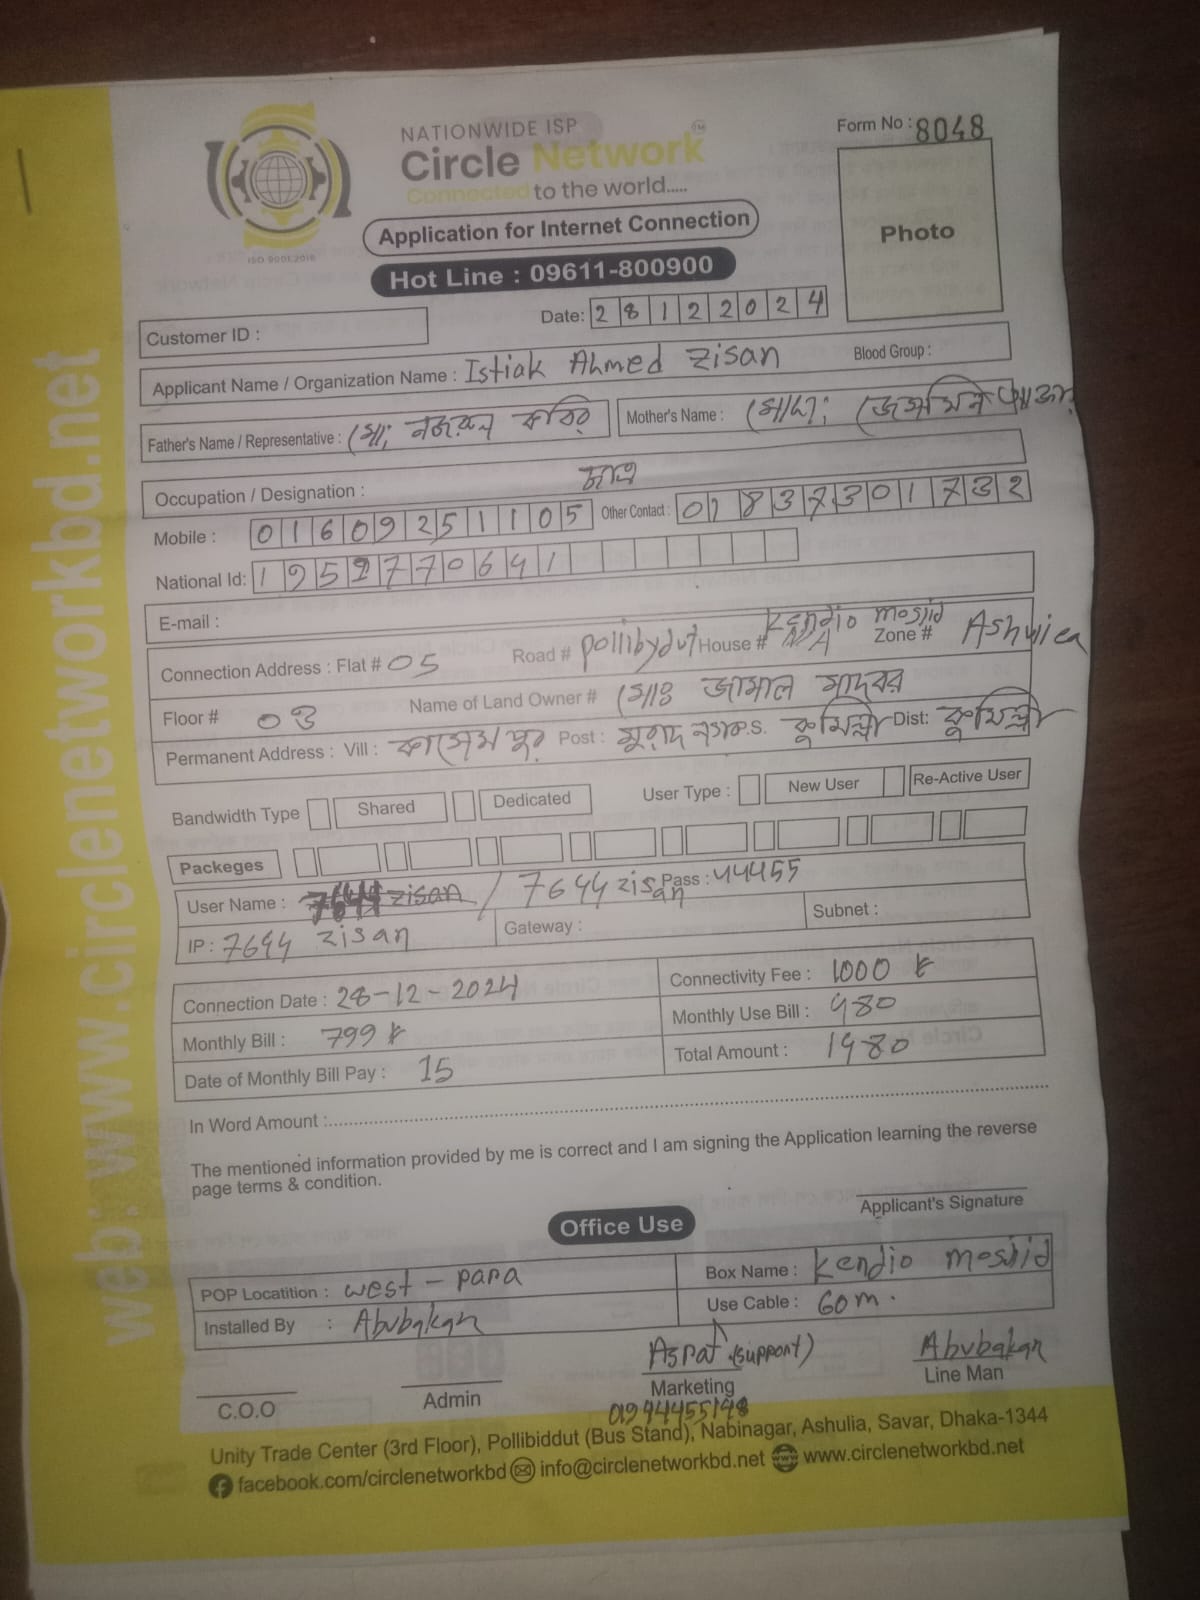 NATIONWIDE ISP
Circle Network
Connected to the world.....
Form No : 8048
Photo
ISO 9001:2015
Application for Internet Connection
Hot Line : 09611-800900
Customer ID :
Date: 28122024
Applicant Name / Organization Name : Istiak Ahmed Zisan Blood Group :
Father's Name / Representative : মোঃ নজরুল কবির Mother's Name : মোছাঃ জেসমিন
Occupation / Designation :
Mobile : 01609251105 Other Contact : 01837301732
National Id: 1952770641
E-mail :
Kendio mosjid
Connection Address : Flat # 05 Road # pollibydut House # N/A Zone # Ashulea
Floor # 03 Name of Land Owner # মোঃ জামাল মাদবর
Permanent Address : Vill : কাসেমপুর Post : মুরাদ নগর P.S. কুমিল্লা Dist: কুমিল্লা
Bandwidth Type Shared Dedicated User Type : New User Re-Active User
Packeges
User Name : 7644 zisan / 7644 zisan Pass : 44455
IP : 7644 zisan Gateway : Subnet :
Connection Date : 28-12-2024 Connectivity Fee : 1000 ৳
Monthly Bill : 799 ৳ Monthly Use Bill : 480
Date of Monthly Bill Pay : 15 Total Amount : 1480
In Word Amount :
The mentioned information provided by me is correct and I am signing the Application learning the reverse
page terms & condition.
Applicant's Signature
Office Use
POP Locatition : west - para Box Name : Kendio mosjid
Installed By : Abubakar Use Cable : 60m.
Asraf (support) Abubakar
C.O.O Admin Marketing Line Man
01944455198
Unity Trade Center (3rd Floor), Pollibiddut (Bus Stand), Nabinagar, Ashulia, Savar, Dhaka-1344
facebook.com/circlenetworkbd info@circlenetworkbd.net www.circlenetworkbd.net
web: www.circlenetworkbd.net